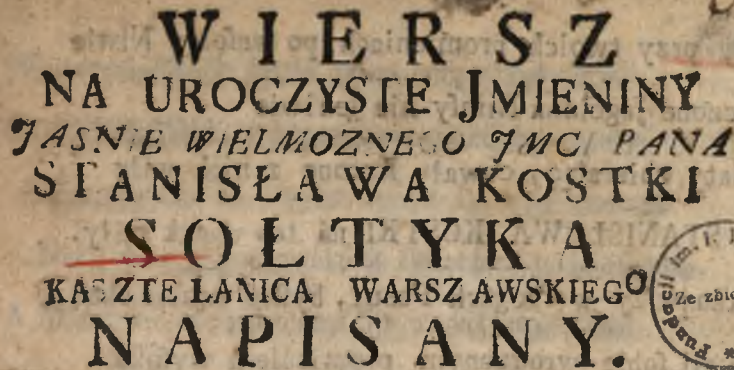 WIERSZ
NA UROCZYSTE JMIENINY
JASNIE WIELMOZNEGO JMC PANA
STANISŁAWA KOSTKI
SOŁTYKA
KASZTELANICA WARSZAWSKIEGO
NAPISANY.
Fundacji im.
Ze zbio